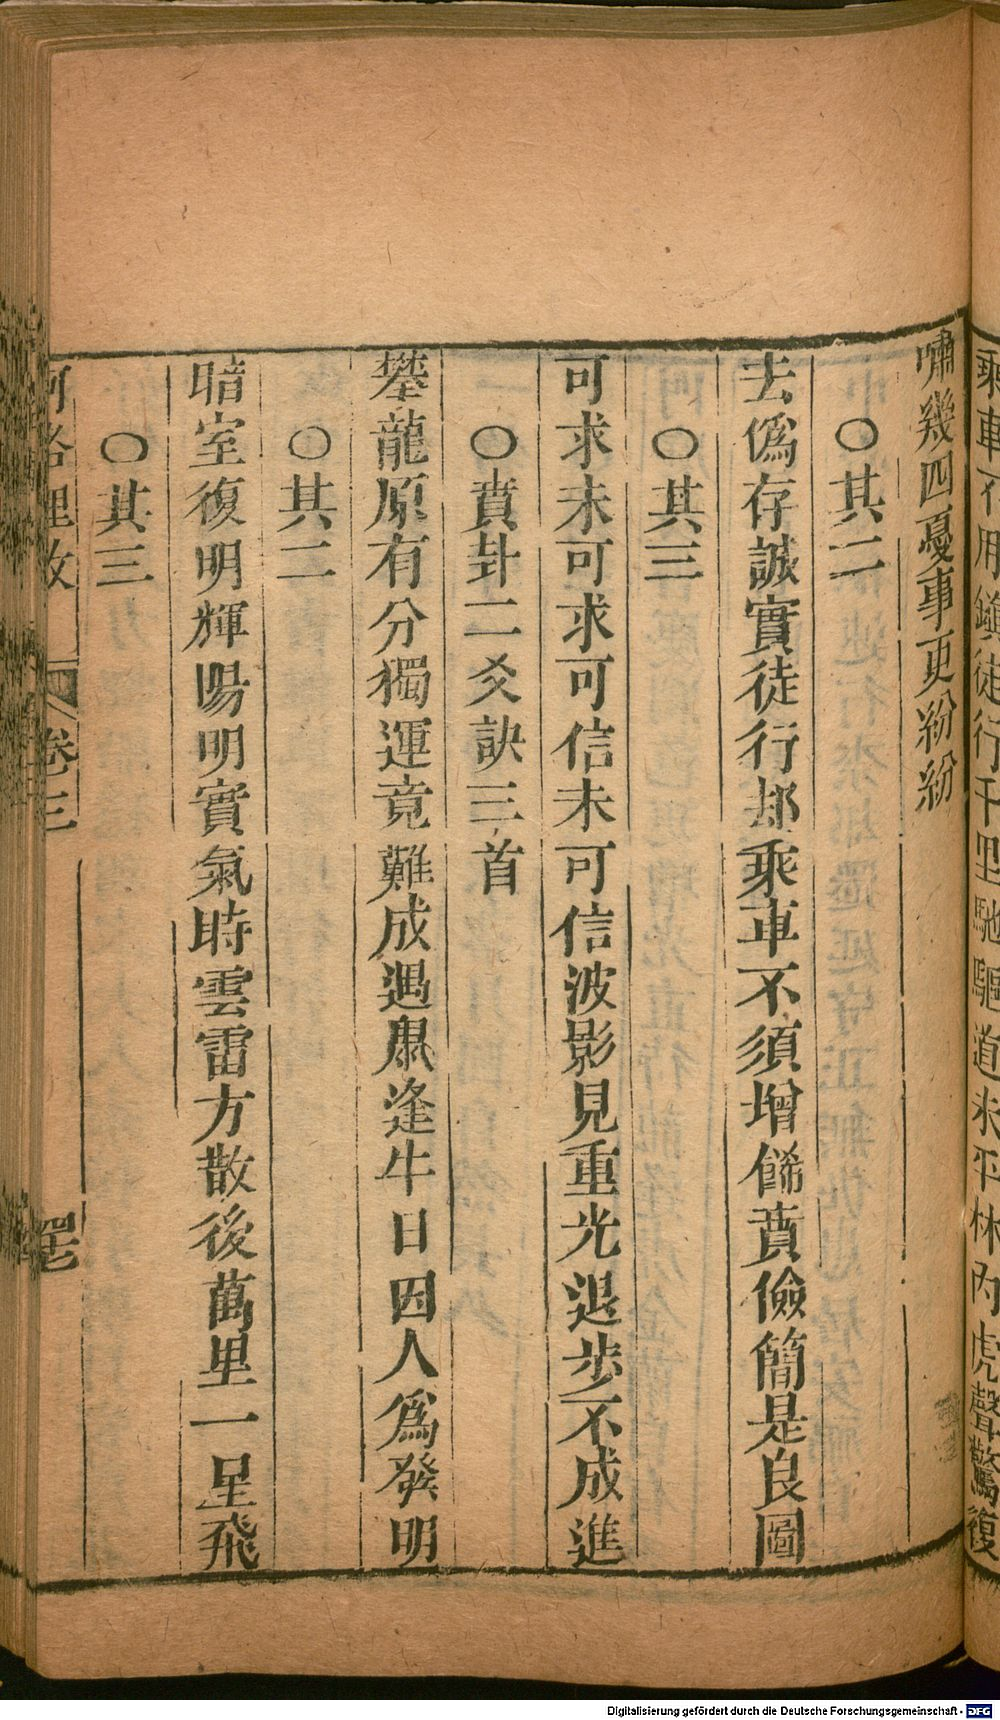 乘車不用鎮徒行千里馳驅道未平林內虎聲驚復
嘯幾回憂事更紛紛
○其二
去偽存誠實徒行却乘車不須增餙賁儉簡是良圖
○其三
可求未可求可信未可信波影見重光退步不成進
○賁卦二爻訣三首
攀龍原有分獨運竟難成遇鼠逢牛日因人為發明
○其二
暗室復明輝陽明實氣時雲雷方散後萬里一星飛
○其三
河洛理數
卷三
Digitalisierung gefördert durch die Deutsche Forschungsgemeinschaft - DFG